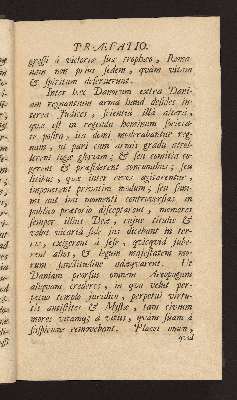 PRÆFATIO.
gressi à victoriæ suæ trophæo, Roma-
nam non prius sedem, quàm vitam
& spiritum deseruerunt.
Inter hæc Danorum extra Dani-
am regnantium arma haud desides in-
terea Judices, scientiâ illâ alteri,
quæ est in regenda hominum societa-
te posita, ius dani moderabantur reg-
num, ut pari cum armis gradu attol-
lerent togæ gloriam; & seu comitia co-
gerent & præsiderent concionibus; seu
litibus, quæ inter cives agitarentur,
imponerent privatim modum; seu sum-
mi aut imi momenti controversias in
publico prætorio disceptarent, memores
semper illius Deæ cujus titulo &
velut vicariâ sede jus dicebant in ter-
ris, exigerent à sese, quicquid jube-
rent alios, & legum majestatem mo-
rum sanctitudine adæquarent. Ut
Daniam prorsus omnem Areopagum
aliquem crederes, in quo velut per-
petuo templo juridico, perpetui virtu-
tis antistites & Mystæ, tam civium
mores vitamque à vitiis, quàm suam à
suspicione removebant. Placet enim,
quod